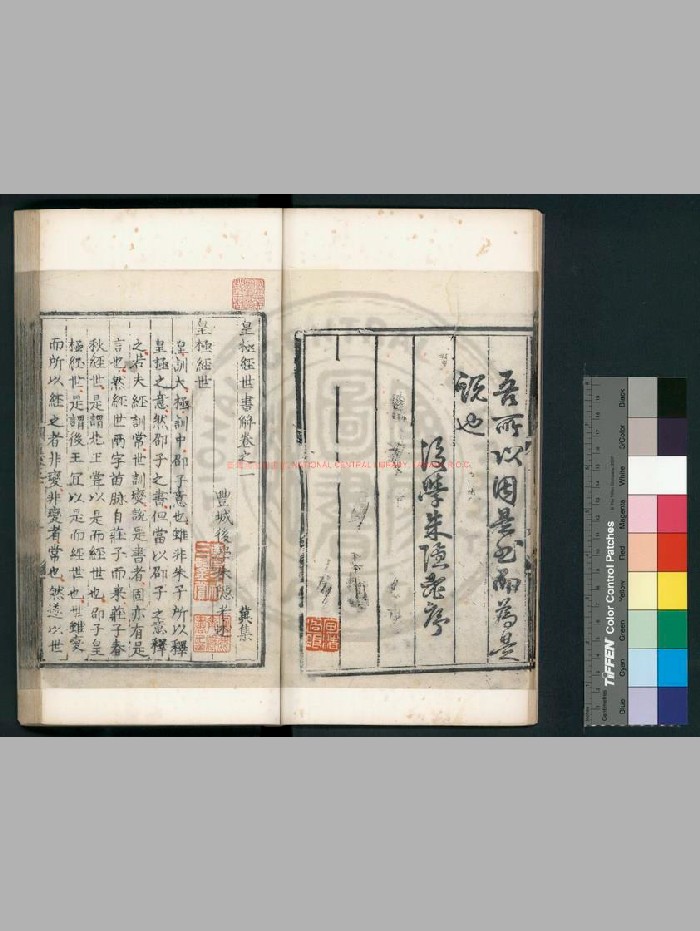 吾所以因是書而為是
說也
後學朱隱老序
皇極經世書解卷之一
豐城後學朱隱老述
集
皇極經世
皇訓大極訓中邵子意也雖非朱子所以釋
皇極之意然邵子之書但當以邵子之意釋
之若夫經訓常世訓變說是書者固亦有是
言也然經世兩字苗脉自莊子而來莊子春
秋經世是謂先王嘗以是而經世也邵子皇
極經世是謂後王宜以是而經世也世雖變
而所以經之者非變非變者常也然遂以世
NATIONAL CENTRAL LIBRARY, TAIWAN, R.O.C.
TIFFEN Color Control Patches
Blue Cyan Green Yellow Red Magenta White 3/Color Black
Centimetres